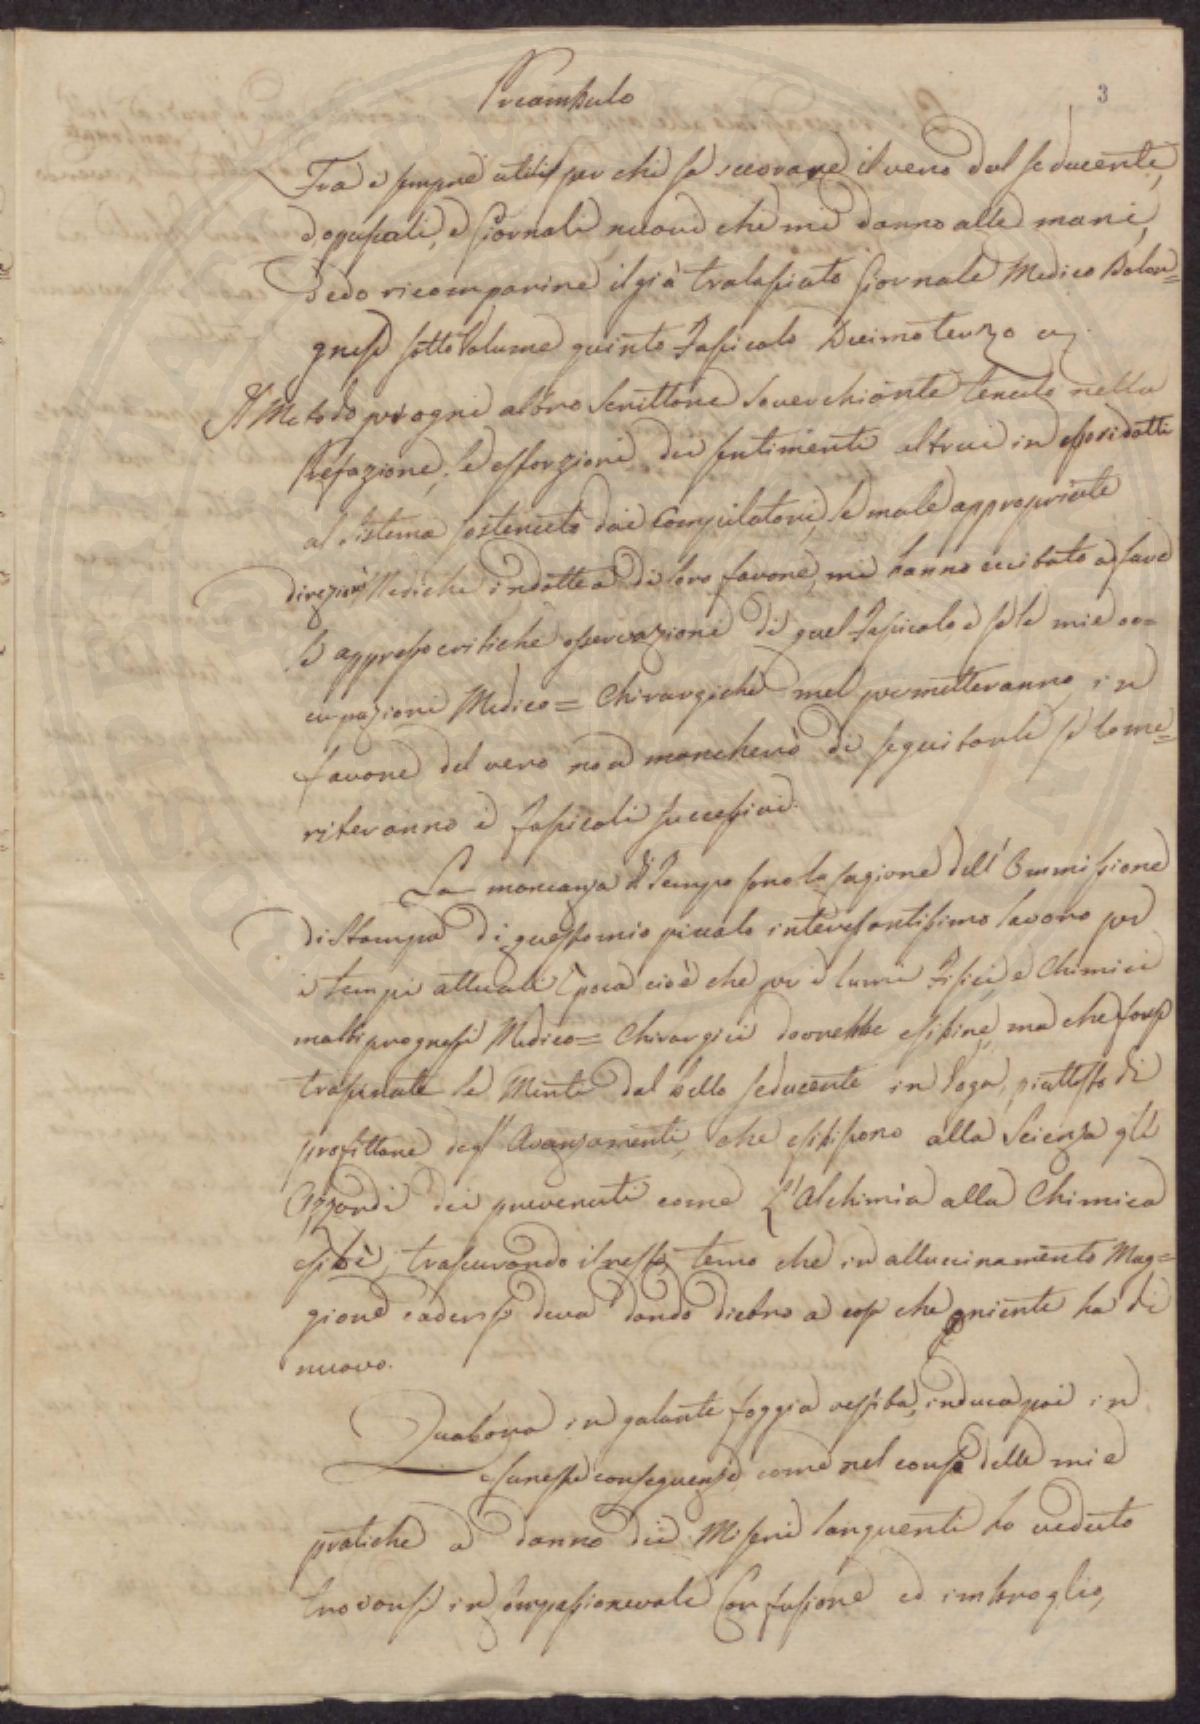 Preambulo
3
Tra i sempre utili per chi sà scevrare il vero dal seducente,
opuscoli, e Giornali nuovi che mi danno alle mani,
vedo ricomparire il già tralasciato Giornale Medico Bolon=
gnese sotto Volume quinto Fascicolo Decimoterzo
Il Metodo per ogni altro Scrittore tenuto nella
Prefazione, le dei sentimenti altrui in
al Sistema sostenuto dai Compilatori, le male appropriate
direzioni Mediche indotte a di loro favore, mi hanno eccitato a fare
le appresso critiche osservazioni di quel Fascicolo e se le mie oc=
cupazioni Medico=Chirurgiche mel permetteranno in
favore del vero non mancherò di seguitarle se lo me=
riteranno i Fascicoli successivi.
La mancanza di Tempo sono la cagione dell'Ommissione
di Stampa di questo mio piccolo interessantissimo lavoro per
i tempi attuali Epoca cioè che per i lumi Fisici, e Chimici
molti progressi Medico=Chirurgici dovrebbe esibire, ma che forse
trascinate le Menti dal bello seducente in voga, piuttosto di
profittare degl'Avanzamenti, che esibiscono alla Scienza gli
Azzardi dei prevenuti come l'Alchimia alla Chimica
esibì, trascurando il resto temo che in alluccinamento Mag=
giore cadersi deva dando dietro a cose che niente ha di
nuovo.
Qualora in galante foggia vestita, induca poi in
funeste conseguenze come nel corso delle mie
pratiche a danno dei Miseri languenti ho veduto
trovarsi in compassionevole Confusione ed imbroglio,